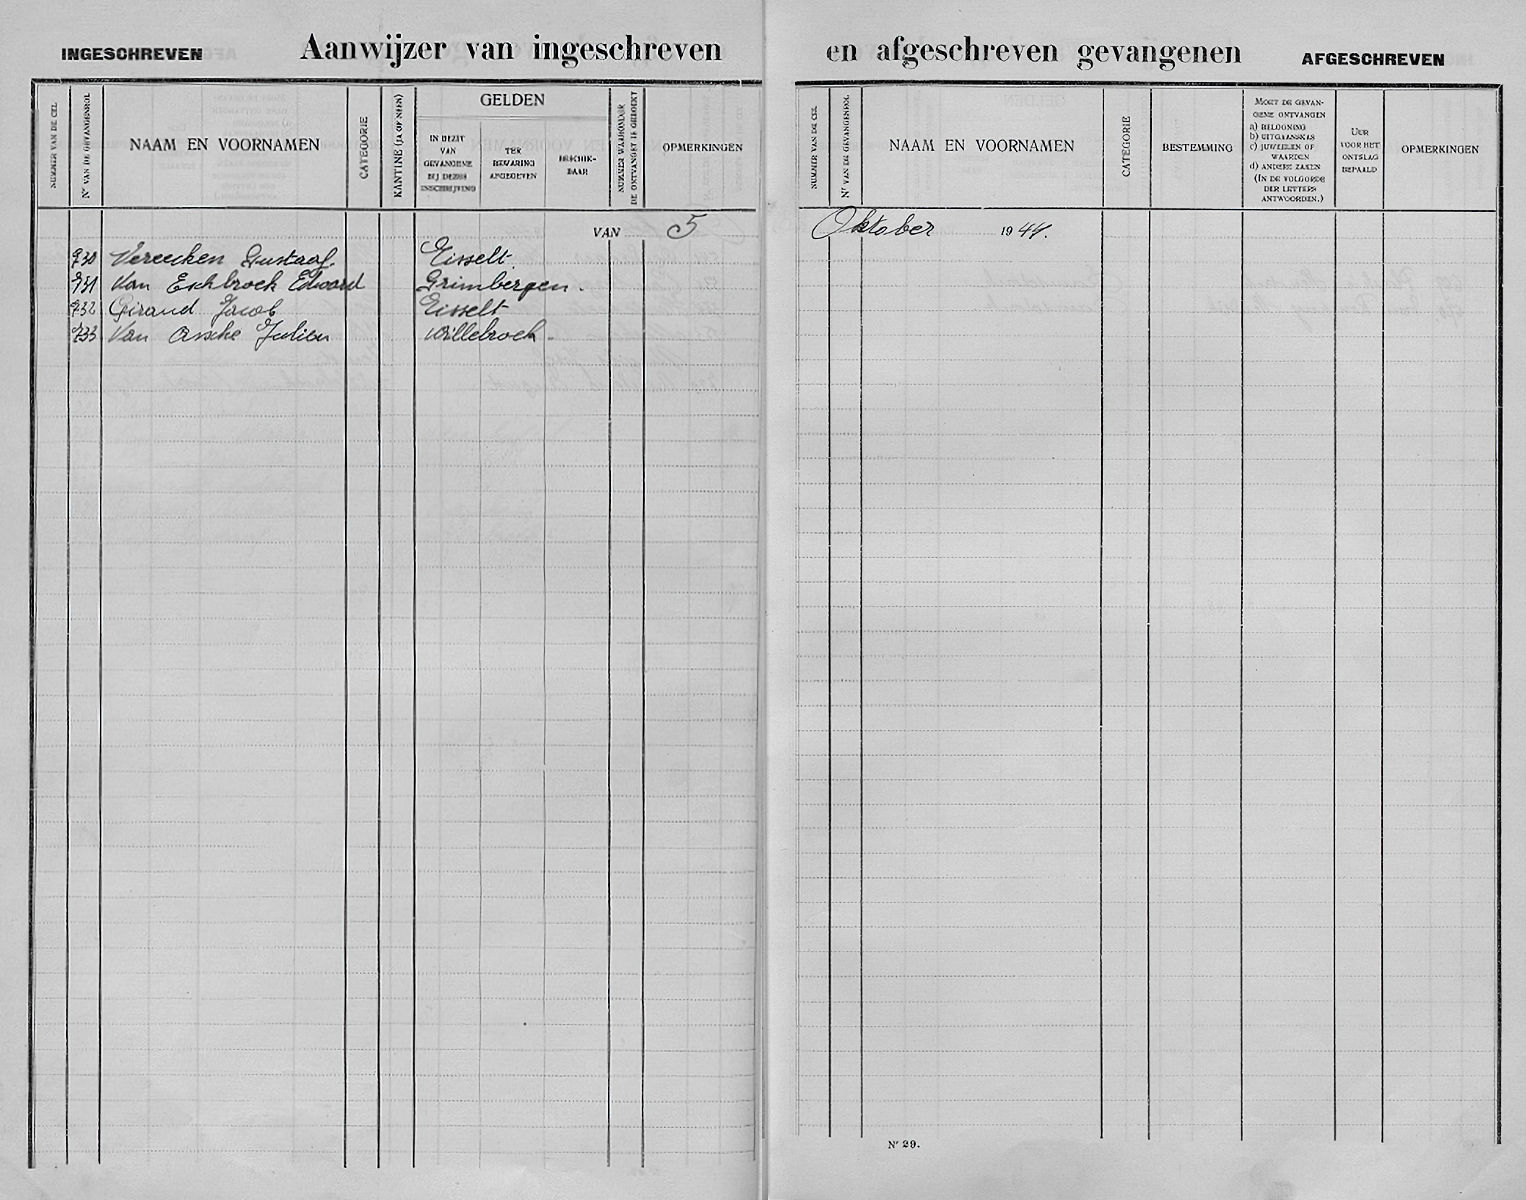 INGESCHREVEN Aanwijzer van ingeschreven en afgeschreven gevangenen AFGESCHREVEN
NUMMER VAN DE CEL
Nr VAN DE GEVANGENROL
NAAM EN VOORNAMEN
CATEGORIE
KANTINE (JA OF NEEN)
GELDEN
IN BEZIT
VAN
GEVANGENE
BIJ DEZES
INSCHRIJVING
TER
BEWARING
AFGEGEVEN
BESCHIK-
BAAR
NUMMER WAARONDER
DE ONTVANGST IS GEBOEKT
OPMERKINGEN
NUMMER VAN DE CEL
Nr VAN DE GEVANGENROL
NAAM EN VOORNAMEN
CATEGORIE
BESTEMMING
MOET DE GEVAN-
GENE ONTVANGEN
a) BELOONING
b) UITGAANSKAS
c) JUWEELEN OF
WAARDEN
d) ANDERE ZAKEN
(IN DE VOLGORDE
DER LETTERS
ANTWOORDEN.)
UUR
VOOR HET
ONTSLAG
BEPAALD
OPMERKINGEN
VAN 5 Oktober 1944.
930 Vereecken Gustaaf. Eisselt.
931 Van Eschbroek Edward Grimbergen.
932 Girand Jacob Eisselt
933 Van Assche Julien Willebroek.
Nr 29.